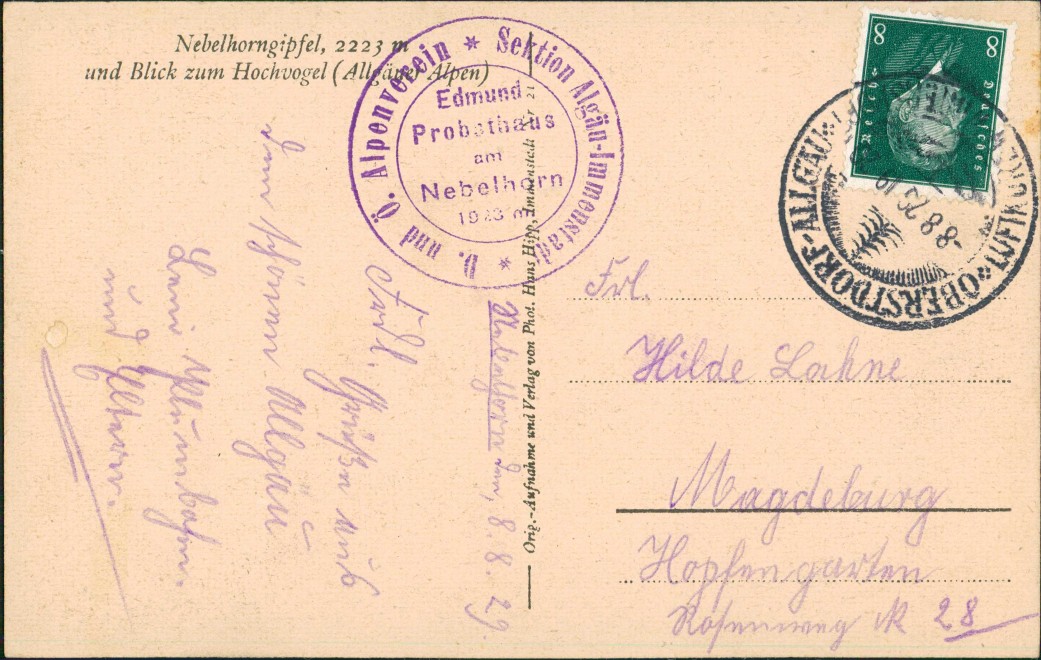 Nebelhorngipfel, 2223 m
und Blick zum Hochvogel (Allgäuer Alpen)
D. und Ö. Alpenverein * Sektion Algäu-Immenstadt *
Edmund
Probsthaus
am
Nebelhorn
1923 m
8 8
Deutsches Reich
OBERSTDORF-ALLGÄU
-8.8.29
Orig.-Aufnahme und Verlag von Phot. Hans Hipp, Immenstadt Nr 21
Nebelhorn den, 8. 8. 29.
Frdl. Grüße aus
dem schönen Allgäu
und Eltern.
Frl.
Hilde Lahne
Magdeburg
Hopfengarten
Rosenweg № 28